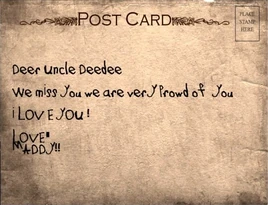 POST CARD
PLACE
STAMP
HERE
Deer Uncle Deedee
We miss you we are very Prowd of you
i LOVE YOU!
LOVE"
MADDY!!